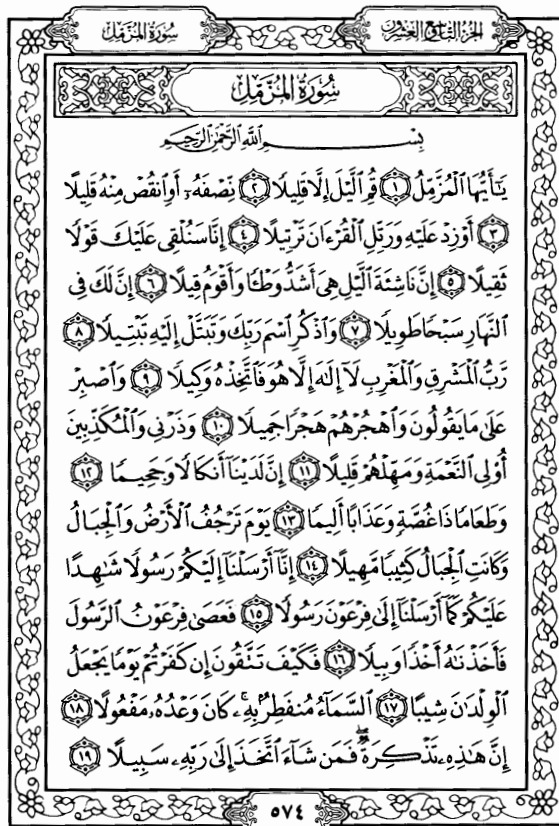 الجزء التاسع والعشرون
سورة المزمل
سُورَةُ المُزَّمِّلِ
بِسۡمِ ٱللَّهِ ٱلرَّحۡمَٰنِ ٱلرَّحِيمِ
يَٰٓأَيُّهَا ٱلۡمُزَّمِّلُ ١ قُمِ ٱلَّيۡلَ إِلَّا قَلِيلٗا ٢ نِّصۡفَهُۥٓ أَوِ ٱنقُصۡ مِنۡهُ قَلِيلًا
٣ أَوۡ زِدۡ عَلَيۡهِ وَرَتِّلِ ٱلۡقُرۡءَانَ تَرۡتِيلًا ٤ إِنَّا سَنُلۡقِي عَلَيۡكَ قَوۡلٗا
ثَقِيلًا ٥ إِنَّ نَاشِئَةَ ٱلَّيۡلِ هِيَ أَشَدُّ وَطۡـٔٗا وَأَقۡوَمُ قِيلًا ٦ إِنَّ لَكَ فِي
ٱلنَّهَارِ سَبۡحٗا طَوِيلٗا ٧ وَٱذۡكُرِ ٱسۡمَ رَبِّكَ وَتَبَتَّلۡ إِلَيۡهِ تَبۡتِيلٗا ٨
رَّبُّ ٱلۡمَشۡرِقِ وَٱلۡمَغۡرِبِ لَآ إِلَٰهَ إِلَّا هُوَ فَٱتَّخِذۡهُ وَكِيلٗا ٩ وَٱصۡبِرۡ
عَلَىٰ مَا يَقُولُونَ وَٱهۡجُرۡهُمۡ هَجۡرٗا جَمِيلٗا ١٠ وَذَرۡنِي وَٱلۡمُكَذِّبِينَ
أُوْلِي ٱلنَّعۡمَةِ وَمَهِّلۡهُمۡ قَلِيلًا ١١ إِنَّ لَدَيۡنَآ أَنكَالٗا وَجَحِيمٗا ١٢
وَطَعَامٗا ذَا غُصَّةٖ وَعَذَابًا أَلِيمٗا ١٣ يَوۡمَ تَرۡجُفُ ٱلۡأَرۡضُ وَٱلۡجِبَالُ
وَكَانَتِ ٱلۡجِبَالُ كَثِيبٗا مَّهِيلًا ١٤ إِنَّآ أَرۡسَلۡنَآ إِلَيۡكُمۡ رَسُولٗا شَٰهِدًا
عَلَيۡكُمۡ كَمَآ أَرۡسَلۡنَآ إِلَىٰ فِرۡعَوۡنَ رَسُولٗا ١٥ فَعَصَىٰ فِرۡعَوۡنُ ٱلرَّسُولَ
فَأَخَذۡنَٰهُ أَخۡذٗا وَبِيلٗا ١٦ فَكَيۡفَ تَتَّقُونَ إِن كَفَرۡتُمۡ يَوۡمٗا يَجۡعَلُ
ٱلۡوِلۡدَٰنَ شِيبًا ١٧ ٱلسَّمَآءُ مُنفَطِرُۢ بِهِۦۚ كَانَ وَعۡدُهُۥ مَفۡعُولًا ١٨
إِنَّ هَٰذِهِۦ تَذۡكِرَةٞۖ فَمَن شَآءَ ٱتَّخَذَ إِلَىٰ رَبِّهِۦ سَبِيلًا ١٩
٥٧٤